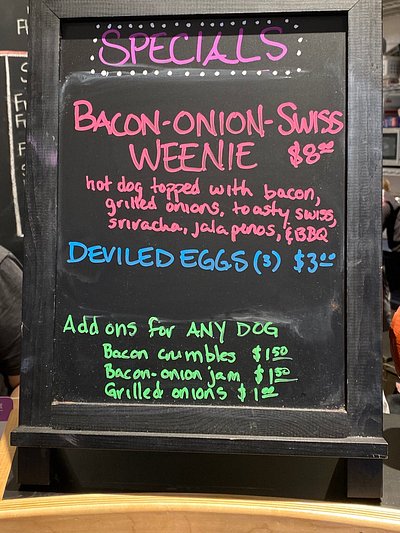 SPECIALS
BACON-ONION-SWISS
WEENIE $8.00
hot dog topped with bacon,
grilled onions, toasty swiss,
sriracha, jalapenos, & BBQ
DEVILED EGGS (3) $3.00
Add ons for ANY DOG
Bacon crumbles $1.50
Bacon-onion jam $1.50
Grilled onions $1.00